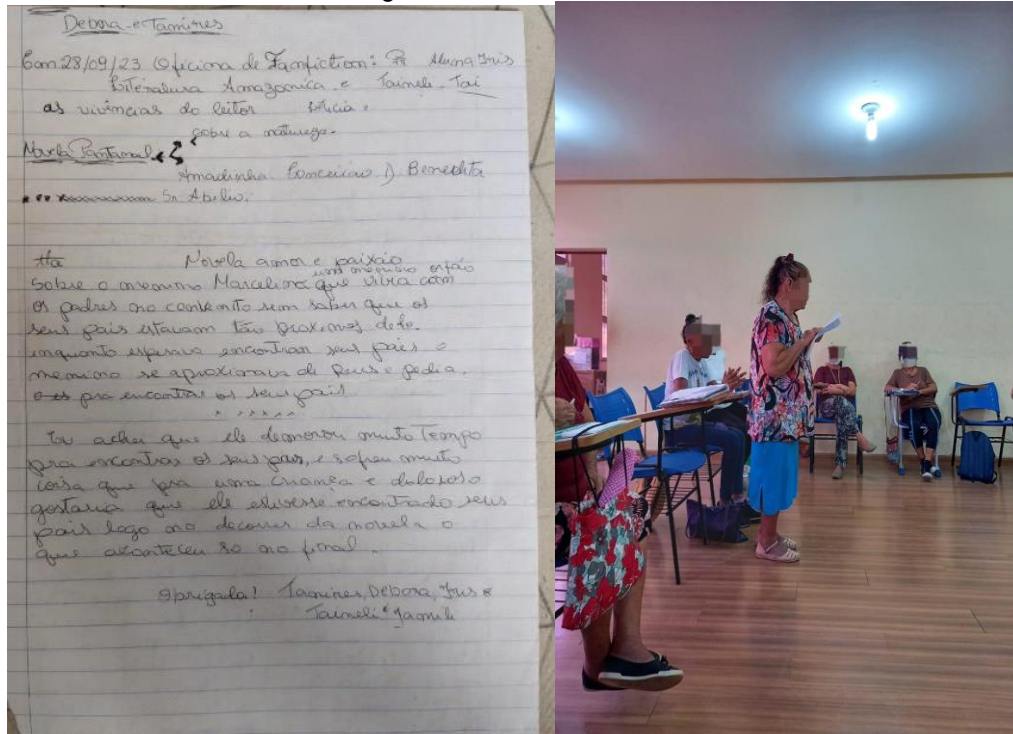 Debora e Tamires
Em 28/09/23 Oficina de Fanfiction: Aluna Iris
Literatura Amazonica e Taineli Tai
as vivências do leitor
sobre a natureza.
Novela Pantanal
Amadinha Conceicao D. Benedita
Sr Abilio.
Novela amor e paixão
um menino orfão
sobre o menino Marcelino que vivia com
os padres no convento sem saber que os
seus pais estavam tão proximos dele.
inquanto esperava encontrar seus pais o
menino se aproximava de Deus e pedia.
pra encontrar os seus pais
Eu achei que ele demorou muito Tempo
pra encontrar os seus pais, e sofreu muito
coisa que pra uma criança e doloroso
gostaria que ele estivesse encontrado seus
pais logo no decorrer da novela o
que aconteceu so no final.
obrigada! Tamires, Debora, Iris e
Taineli Jamili